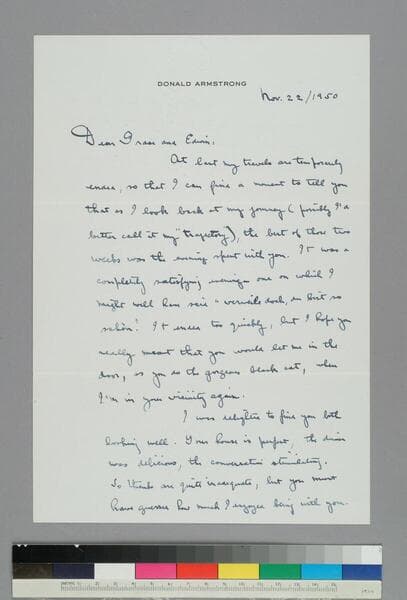 DONALD ARMSTRONG
Nov. 22/1950
Dear Grace and Edwin,
At last my travels are temporarily
ended, so that I can find a moment to tell you
that as I look back at my journey (possibly I'd
better call it my "trajectory"), the best of those two
weeks was the evening spent with you. It was a
completely satisfying evening one on which I
might well have said "verweile doch, du bist so
schön". It ended too quickly, but I hope you
really meant that you would let me in the
door, as you do the gorgeous black cat, when
I'm in your vicinity again.
I was delighted to find you both
looking well. Your house is perfect, the dinner
was delicious, the conversation stimulating.
So thanks are quite inadequate, but you must
have guessed how much I enjoyed being with you.